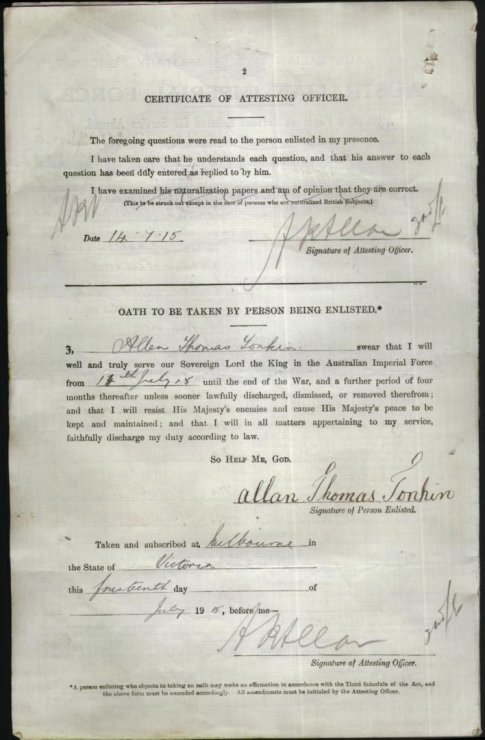 2
CERTIFICATE OF ATTESTING OFFICER.
The foregoing questions were read to the person enlisted in my presence.
I have taken care that he understands each question, and that his answer to each
question has been duly entered as replied to by him.
I have examined his naturalization papers and am of opinion that they are correct.
(This to be struck out except in the case of persons who are naturalized British Subjects.)
Date 14.7.15
Signature of Attesting Officer.
OATH TO BE TAKEN BY PERSON BEING ENLISTED.*
3, Allen Thomas Tonkin swear that I will
well and truly serve our Sovereign Lord the King in the Australian Imperial Force
from 14th July 15 until the end of the War, and a further period of four
months thereafter unless sooner lawfully discharged, dismissed, or removed therefrom;
and that I will resist His Majesty's enemies and cause His Majesty's peace to be
kept and maintained; and that I will in all matters appertaining to my service,
faithfully discharge my duty according to law.
SO HELP ME, GOD.
allan Thomas Tonkin
Signature of Person Enlisted.
Taken and subscribed at Melbourne in
the State of Victoria
this fourteenth day of
July 1915, before me—
Signature of Attesting Officer.
*A person enlisting who objects to taking an oath may make an affirmation in accordance with the Third Schedule of the Act, and
the above form must be amended accordingly. All amendments must be initialed by the Attesting Officer.